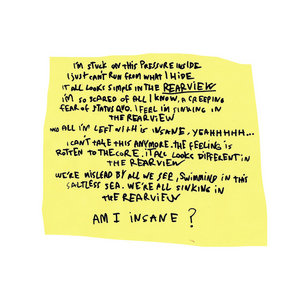 I'm STUCK ON THIS PRESSURE INSIDE
I JUST CAN'T RUN FROM WHAT I HIDE
IT ALL LOOKS SIMPLE IN THE REARVIEW
I'M SO SCARED OF ALL I KNOW, A CREEPING
FEAR OF STATUS QUO. I FEEL I'M SINKING IN
THE REARVIEW
AND ALL I'M LEFT WITH IS INSANE. YEAHHHHH...
I CAN'T TAKE THIS ANYMORE. THE FEELING IS
ROTTEN TO THE CORE. IT ALL LOOKS DIFFERENT IN
THE REARVIEW
WE'RE MISLEAD BY ALL WE SEE, SWIMMING IN THIS
SALTLESS SEA. WE'RE ALL SINKING IN
THE REARVIEW
AM I INSANE?